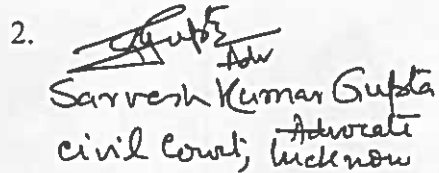 2. SGupta
Adv
Sarvesh Kumar Gupta
Advocate
Civil Court, Lucknow